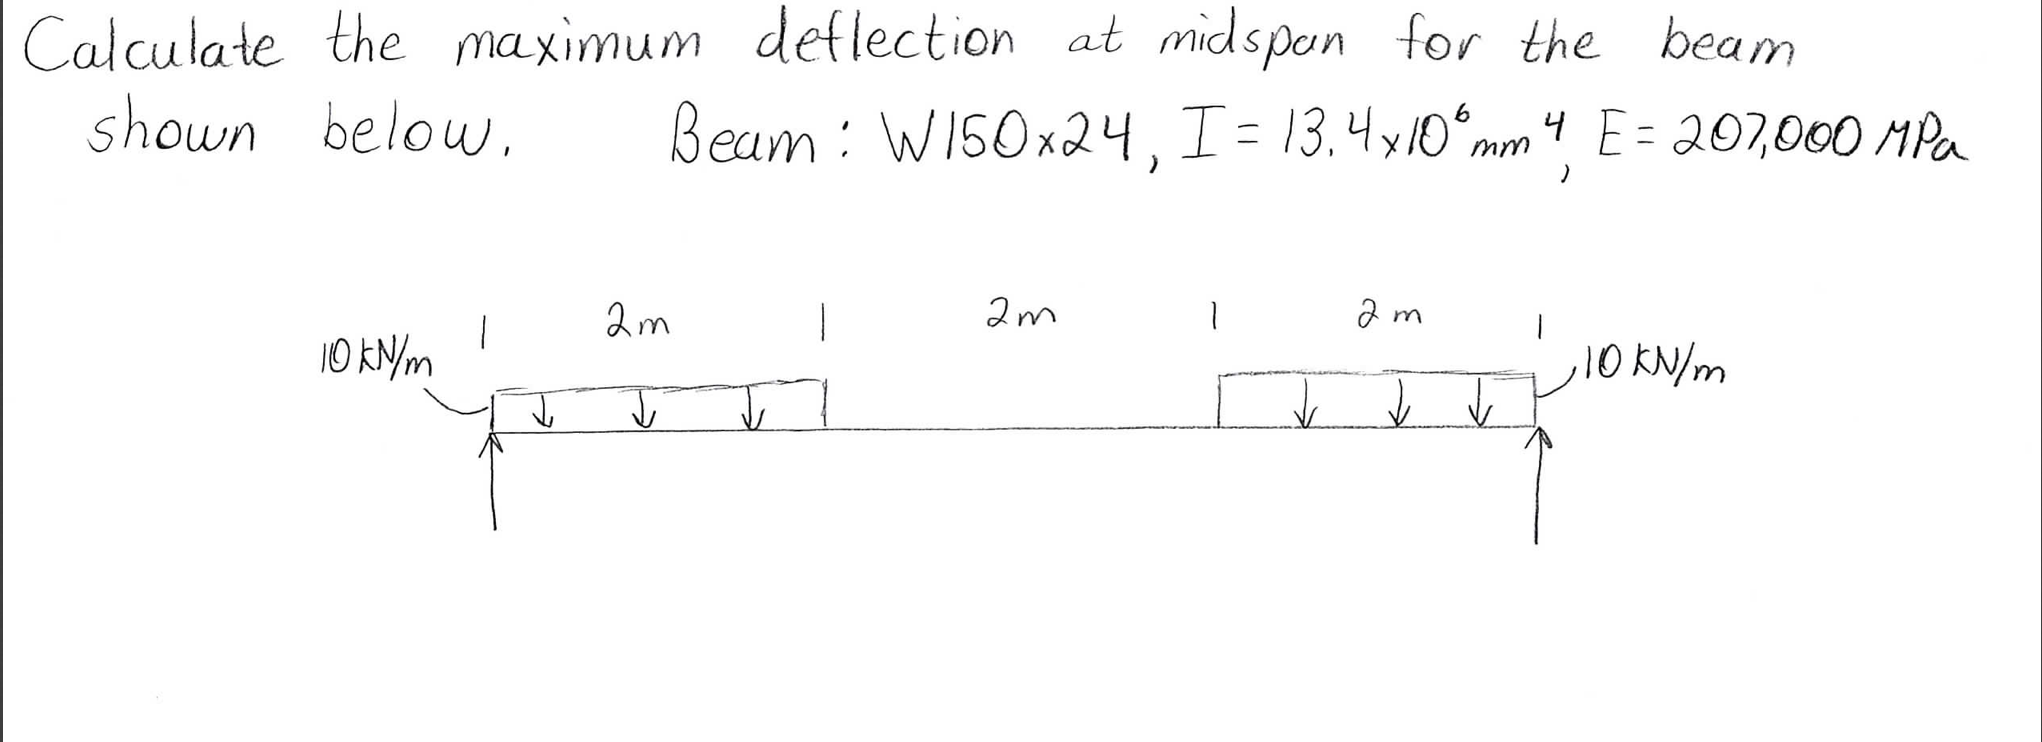 Calculate the maximum deflection at midspan for the beam
shown below. Beam: W150x24, I = 13.4x10⁶ mm⁴, E = 207,000 MPa
2m 2m 2m
10 kN/m 10 kN/m